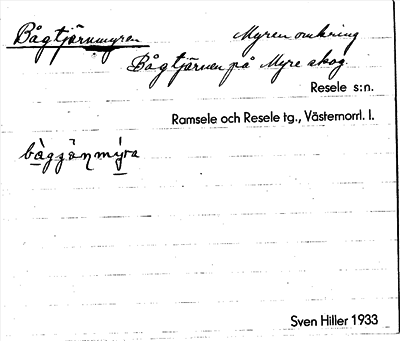 Bågtjärnmyren Myren omkring
Bågtjärnen på Myre skog.
Resele s:n.
Ramsele och Resele tg., Västernorrl. l.
Sven Hiller 1933